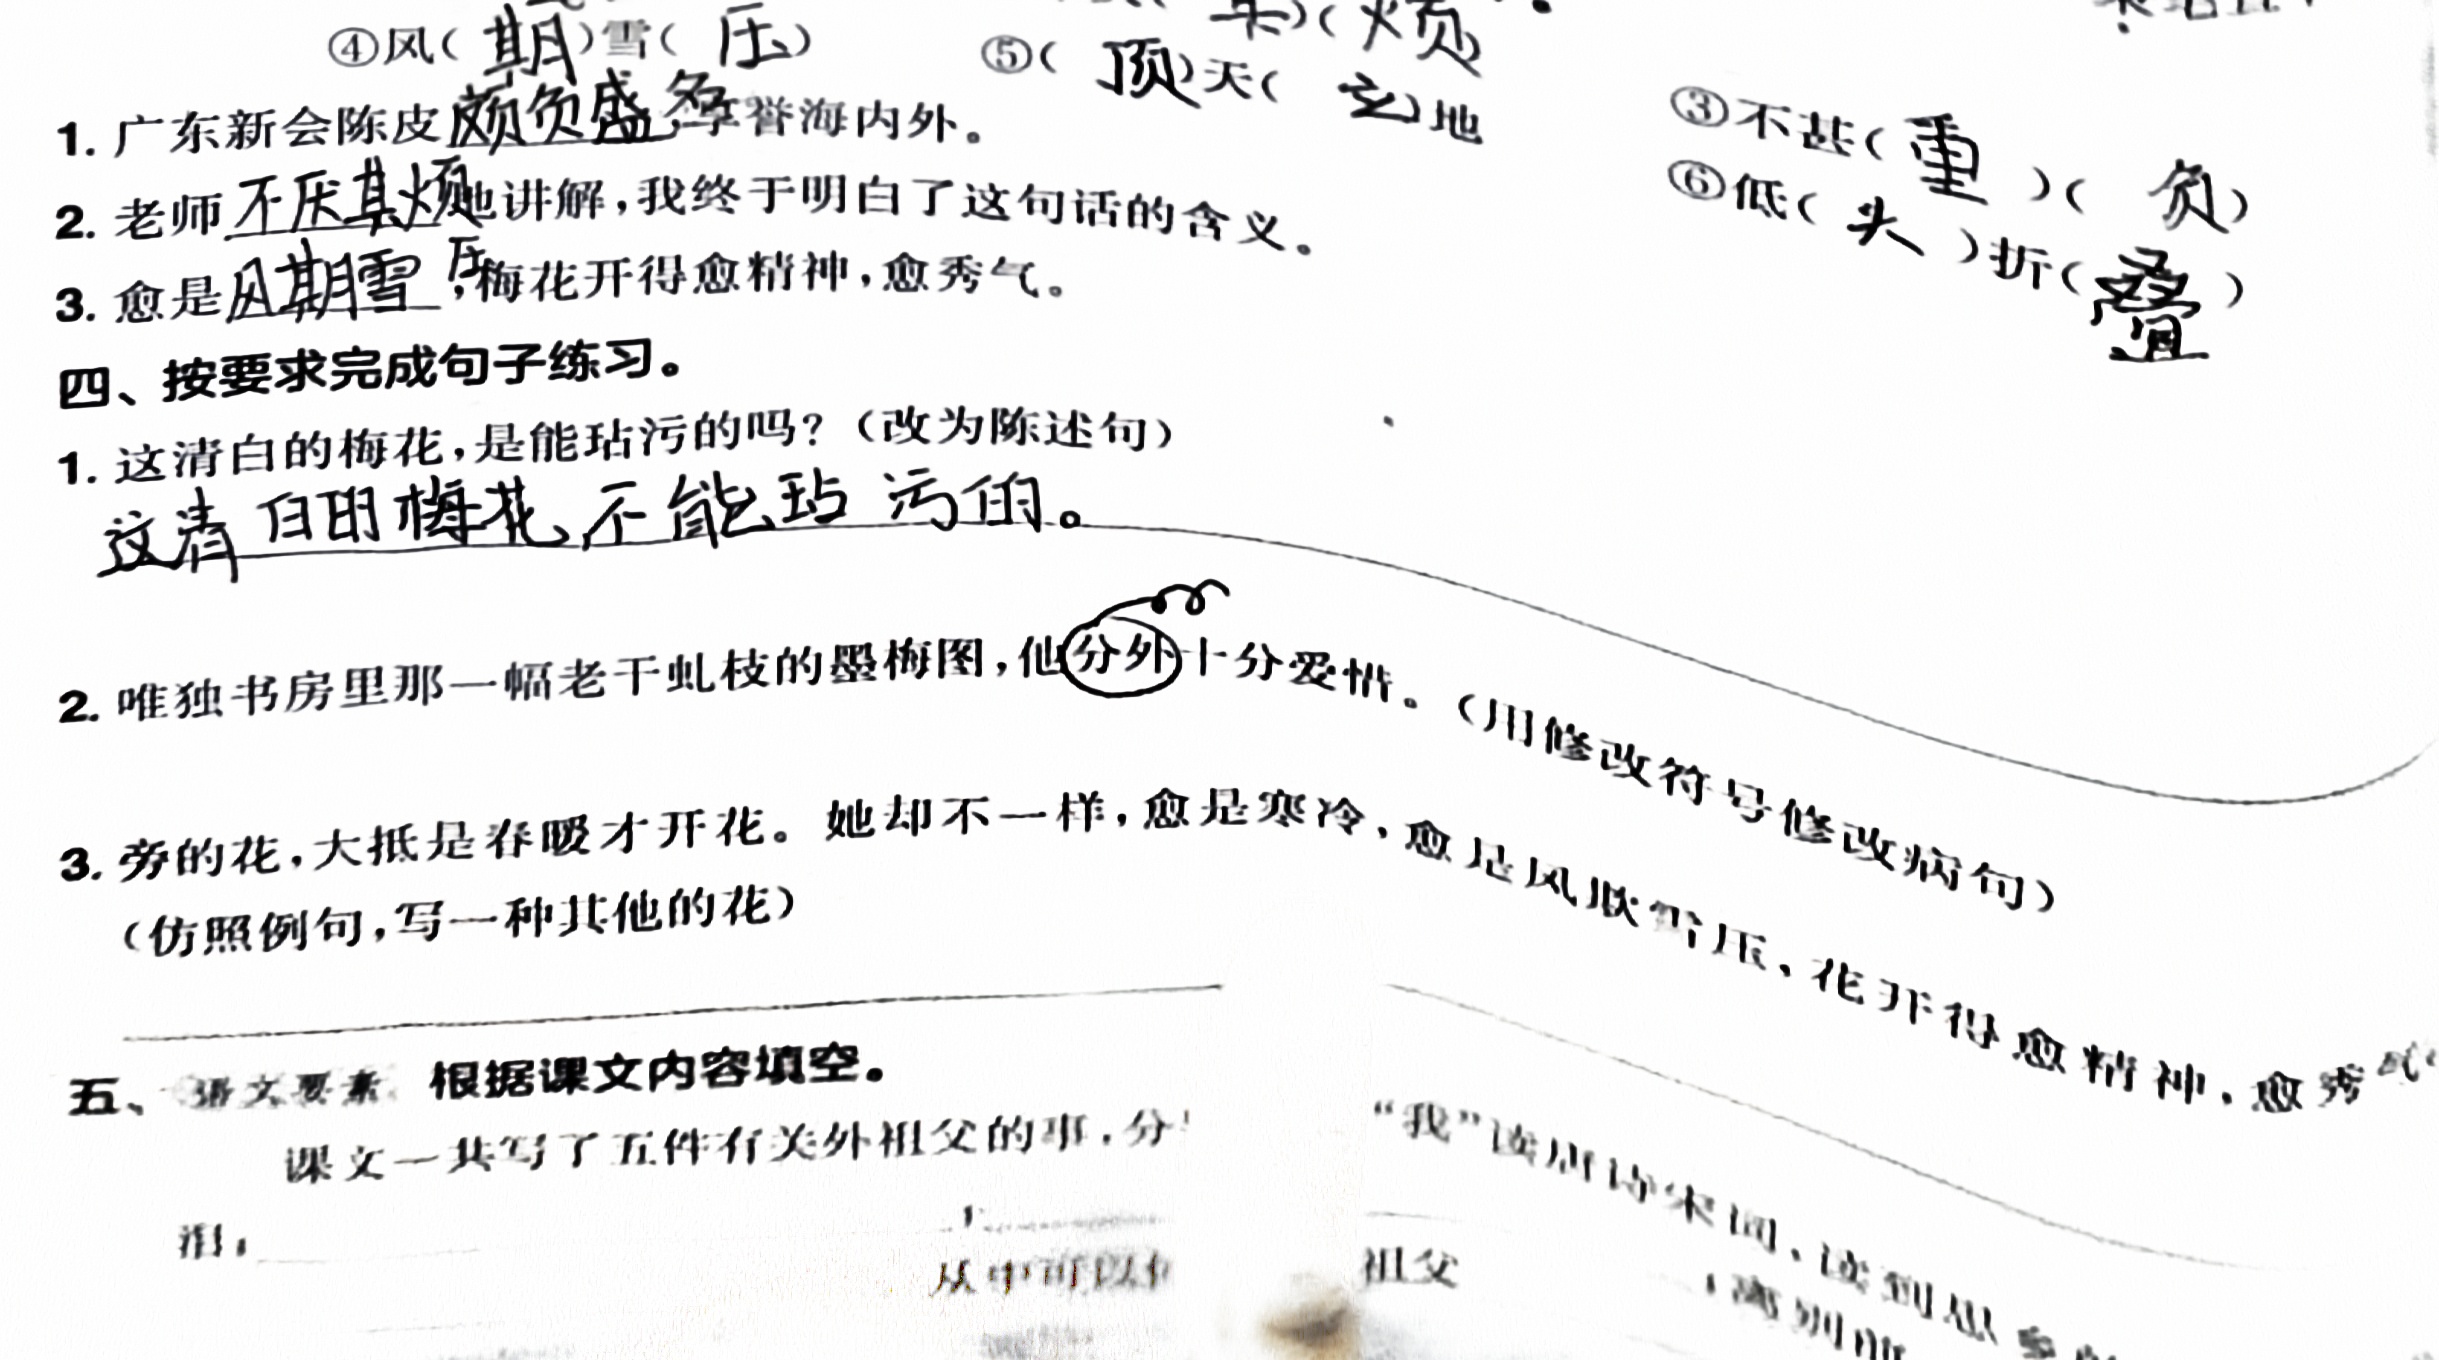 ④风(期)雪(压)
⑤(顶)天(立)地
③不甚(重)(负)
⑥低(头)折(叠)
1. 广东新会陈皮颇负盛名,享誉海内外。
2. 老师不厌其烦地讲解,我终于明白了这句话的含义。
3. 愈是风期雪压,梅花开得愈精神,愈秀气。
四、按要求完成句子练习。
1. 这清白的梅花,是能玷污的吗?(改为陈述句)
这清白的梅花不能玷污的。
2. 唯独书房里那一幅老干虬枝的墨梅图,他分外十分爱惜。(用修改符号修改病句)
3. 旁的花,大抵是春暖才开花。她却不一样,愈是寒冷,愈是风欺雪压,花开得愈精神,愈秀气
(仿照例句,写一种其他的花)
五、语文要素 根据课文内容填空。
课文一共写了五件有关外祖父的事,分
“我”读唐诗宋词,读到思
泪;
从中可以
祖父